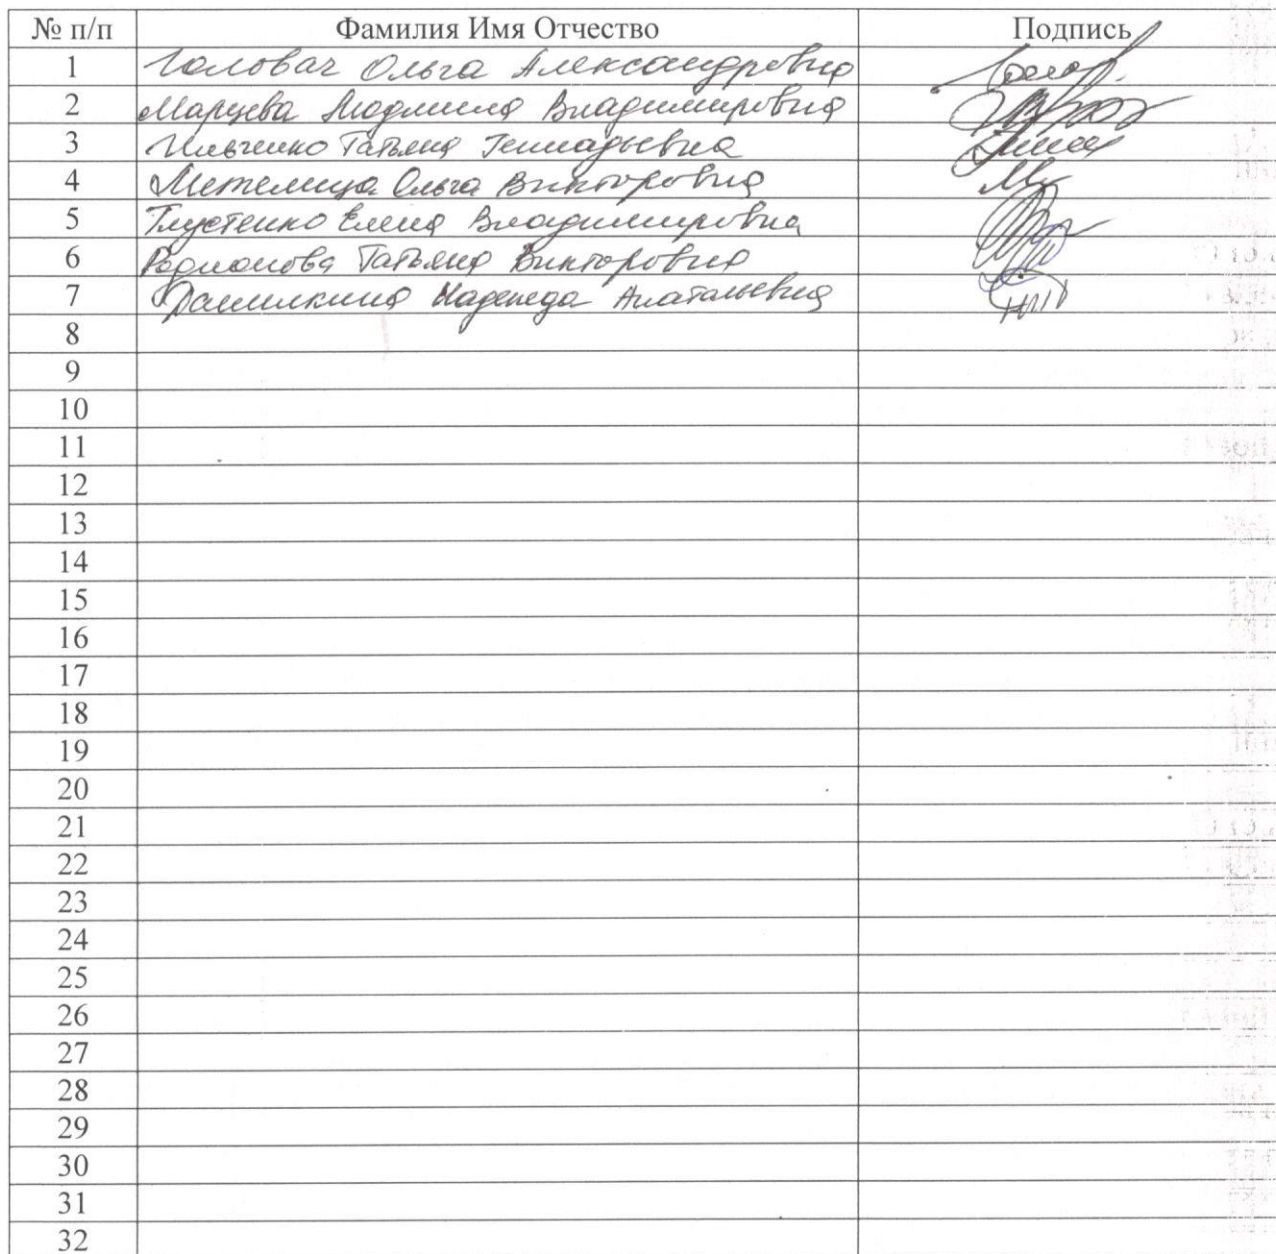 № п/п Фамилия Имя Отчество Подпись
1 Головач Ольга Александровна
2 Марцева Людмила Владимировна
3 Ильченко Татьяна Геннадьевна
4 Метелица Ольга Викторовна
5 Глустенко Елена Владимировна
6 Родионова Татьяна Викторовна
7 Надежда Анатольевна
8
9
10
11
12
13
14
15
16
17
18
19
20
21
22
23
24
25
26
27
28
29
30
31
32